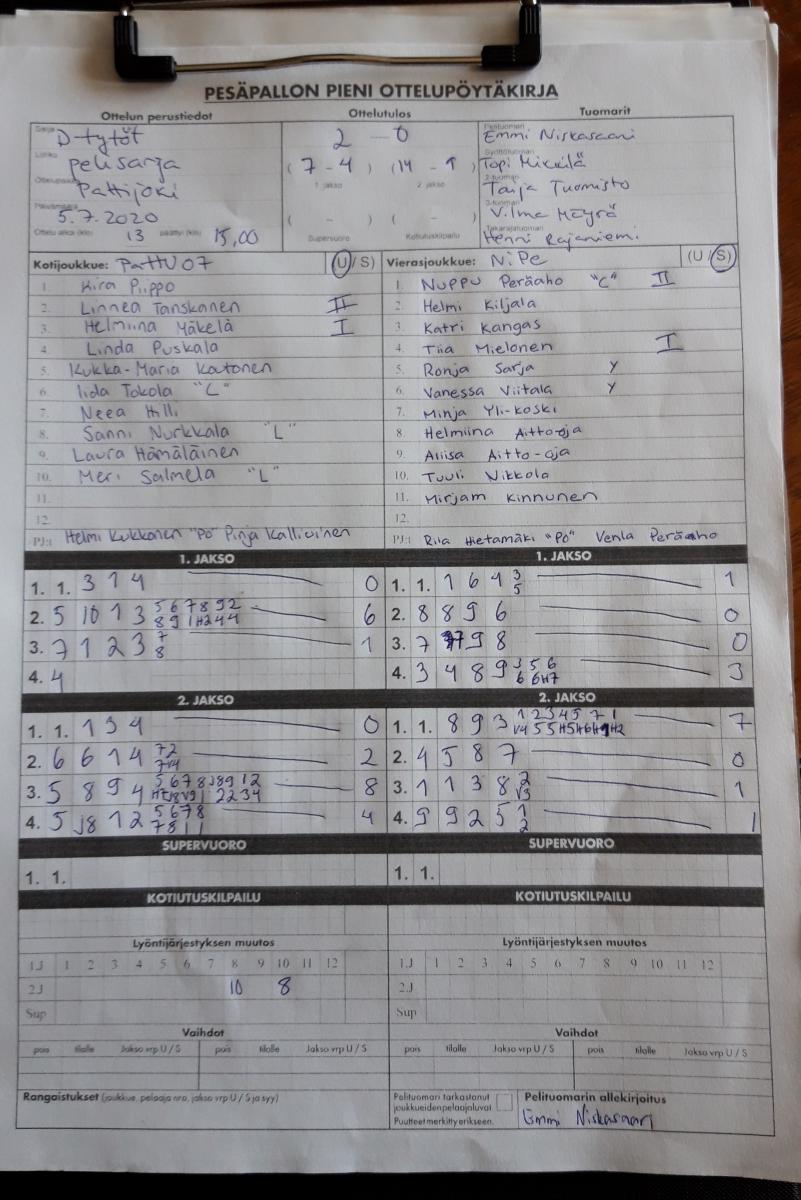 PESÄPALLON PIENI OTTELUPÖYTÄKIRJA
Ottelun perustiedot
Ottelutulos
Tuomarit
Sarja D-tytöt
Lohko pelisarja
Ottelupaikka Pattijoki
Päivämäärä 5.7.2020
Ottelu alkoi (klo) 13 päättyi (klo) 15,00
2 - 0
( 7 - 4 ) (14 - 9 )
1. jakso 2. jakso
( - ) ( - )
Supervuoro Kotiutuskilpailu
Pelituomari Emmi Niskasaari
Syöttötuomari Topi Mikkilä
2-tuomari Tarja Tuomisto
3-tuomari Vilma Möyrä
Takarajatuomari Henni Rajaniemi
Kotijoukkue: PattU 07 (U / S)
1. Kira Piippo
2. Linnea Tanskanen II
3. Helmiina Mäkelä I
4. Linda Puskala
5. Kukka-Maria Katonen
6. Iida Tokola "C"
7. Neea Hilli
8. Sanni Nurkkala "L"
9. Laura Hämäläinen
10. Meri Salmela "L"
11.
12.
PJ:t Helmi Kukkonen "PO" Pinja Kallioinen
Vierasjoukkue: NiPe (U / S)
1. Nuppu Peräaho "C" II
2. Helmi Kiljala
3. Katri Kangas
4. Tiia Mielonen I
5. Ronja Sarja Y
6. Vanessa Viitala Y
7. Minja Yli-Koski
8. Helmiina Aitto-oja
9. Aliisa Aitto-oja
10. Tuuli Nikkola
11. Mirjam Kinnunen
12.
PJ:t Riia Hietamäki "PO" Venla Peräaho
1. JAKSO
1. 1. 3 1 4 0
2. 5 10 1 3 5 6 7 8 9 2 6
8 9 1 H2 4 4
3. 7 1 2 3 7 1
8
4. 4
1. JAKSO
1. 1. 1 6 4 3 1
5
2. 8 8 9 6 0
3. 7 9 8 0
4. 3 4 8 9 3 5 6 3
6 6 H7
2. JAKSO
1. 1. 1 3 4 0
2. 6 6 1 4 7 2 2
3. 5 8 9 4 5 6 7 8 J8 9 1 2 8
4. 5 J8 1 2 5 6 7 8 4
7 8 1 1
2. JAKSO
1. 1. 8 9 3 1 2 3 4 5 7 1 7
2. 4 5 8 7 0
3. 1 1 3 8 2 1
V3
4. 9 9 2 5 1 1
2
SUPERVUORO
1. 1.
SUPERVUORO
1. 1.
KOTIUTUSKILPAILU
KOTIUTUSKILPAILU
Lyöntijärjestyksen muutos
1.J 1 2 3 4 5 6 7 8 9 10 11 12
2.J 10 8
Sup
Lyöntijärjestyksen muutos
1.J 1 2 3 4 5 6 7 8 9 10 11 12
2.J
Sup
Vaihdot
pois tilalle Jakso vrp U / S pois tilalle Jakso vrp U / S
Vaihdot
pois tilalle Jakso vrp U / S pois tilalle Jakso vrp U / S
Rangaistukset (joukkue, pelaaja nro, jakso vrp U / S ja syy)
Pelituomari tarkastanut
joukkueiden pelaajaluvat
Puutteet merkitty erikseen.
Pelituomarin allekirjoitus
Emmi Niskasaari